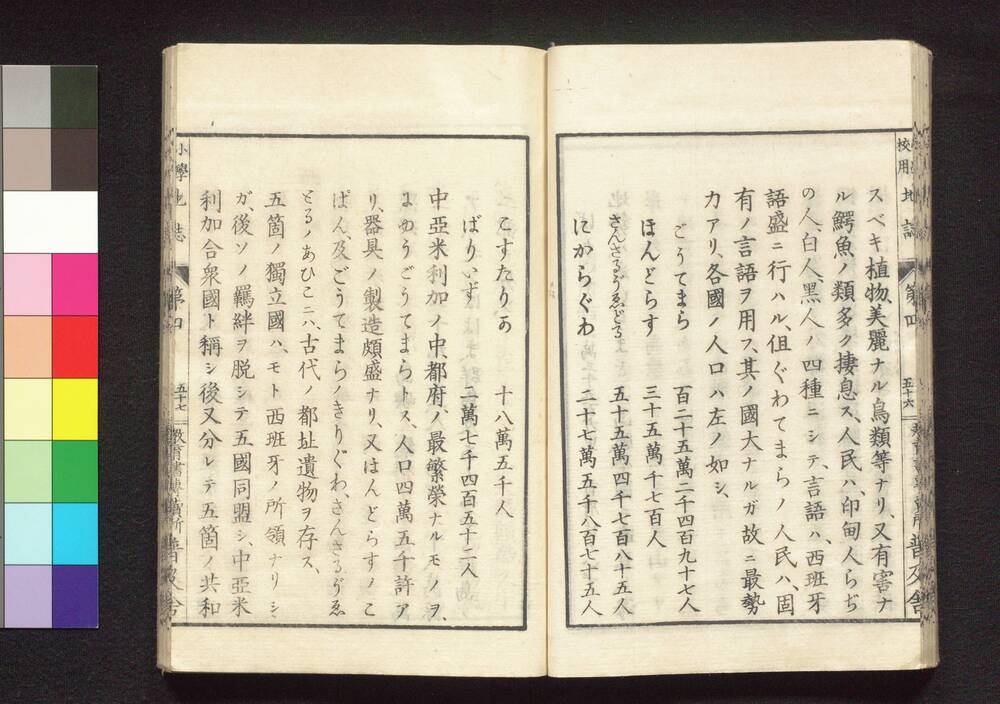 校用 地誌 第四 五十六 普及舎
スベキ植物、美麗ナル鳥類等ナリ、又有害ナ
ル鰐魚ノ類多ク棲息ス、人民ハ、印甸人らぢ
の人、白人、黒人ノ四種ニシテ、言語ハ、西班牙
語盛ニ行ハル、但ぐわてまらノ人民ハ、固
有ノ言語ヲ用フ、其ノ國大ナルガ故ニ最勢
力アリ、各國ノ人口ハ左ノ如シ、
ごうてまら 百二十五萬二千四百九十七人
ほんどらす 三十五萬千七百人
さんさるゔゑどる 五十五萬四千七百八十五人
にからぐわ 二十七萬五千八百七十五人
こすたりか 十八萬五千人
ばりいず 二萬七千四百五十二人
中亞米利加ノ中、都府ノ最繁榮ナルモノヲ、
にゆうごうてまらトス、人口四萬五千許ア
リ、器具ノ製造頗盛ナリ、又ほんどらすノこ
ぱん、及ごうてまらノきりぐわ、さんさるゔゑ
どるノあひこニハ、古代ノ都址遺物ヲ存ス、
五箇ノ獨立國ハ、モト西班牙ノ所領ナリシ
ガ、後ソノ羈絆ヲ脱シテ五國同盟シ、中亞米
利加合衆國ト稱シ後又分レテ五箇ノ共和
小學地誌 第四 五十七 普及舍